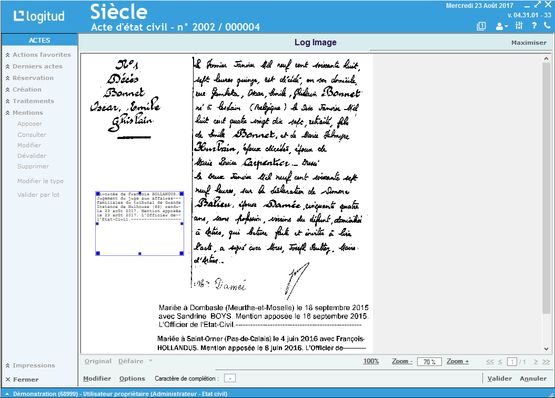 logitud
Siècle
Acte d'état civil - n° 2002 / 000004
Mercredi 23 Août 2017
v. 04.31.01 - 33
ACTES
Log Image
Maximiser
Actions favorites
Derniers actes
Réservation
Création
Traitements
Mentions
Apposer
Consulter
Modifier
Dévalider
Supprimer
Modifier le type
Valider par lot
Impressions
Fermer
N° 1
Décès
Bonnet
Oscar, Emile
Ghislain
Divorcée de François HOLLANDUS.
Jugement du juge aux affaires
familiales du tribunal de Grande
Instance de Mulhouse (68) rendu
le 23 août 2017. Mention apposée
le 23 août 2017. L'Officier de
l'Etat-Civil.
Le Premier Janvier Mil neuf cent soixante huit,
sept heures quinze, est décédé, en son domicile,
rue Gambetta, Oscar, Emile, Ghislain Bonnet
né à
(Belgique) le Dix Janvier Mil
huit cent quatre vingt dix sept, retraité, fils
de Emile Bonnet, et de Marie
époux décédés, époux de
Marie Louise Carpentier
le deux Janvier Mil neuf cent soixante huit
neuf heures, sur la déclaration de
épouse Damée, cinquante quatre
ans, sans profession, voisine du défunt, domiciliée
à
, qui lecture faite et invitée à lire
l'acte, a signé avec Nous, Joseph
, Maire
Damée
Mariée à Dombasle (Meurthe-et-Moselle) le 18 septembre 2015
avec Sandrine BOYS. Mention apposée le 18 septembre 2015.
L'Officier de l'Etat-Civil.
Mariée à Saint-Omer (Pas-de-Calais) le 4 juin 2016 avec François
HOLLANDUS. Mention apposée le 8 juin 2016. L'Officier de
Original Défaire 100% Zoom - 70 % Zoom + 1 / 1
Modifier Options Caractère de complétion : - Valider Annuler
Démonstration (68999) - Utilisateur propriétaire (Administrateur - Etat civil)